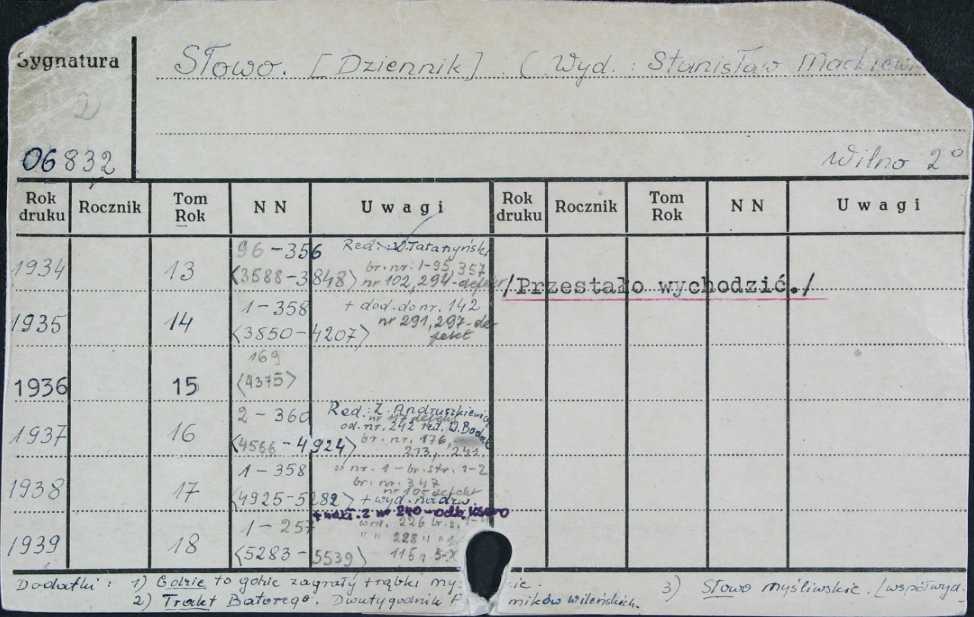 Sygnatura
Słowo. [Dziennik]. (Wyd.: Stanisław
06832
Wilno 2°
Rok druku Rocznik Tom Rok NN Uwagi Rok druku Rocznik Tom Rok NN Uwagi
1934 13 96-356 Red.:
<3588-3848> br. nr. 1-95, 357
nr 102, 294-defekt
/Przestało wychodzić./
1935 14 1-358 + dod. do nr. 142
<3850-4207> nr 291, 297-de-
fekt
1936 15 169
<4375>
1937 16 2-360 Red.: Z. Andruszkiewicz
od. nr. 242 red. W.
<4566-4924> br. nr. 176,
213, 242
1938 17 1-358 w nr. 1-br. str. 1-2
br. nr. 347
nr 105 defekt
<4925-5282> + wyd. nadzw.
+ nakł. 2 nr 240-odb. ksero
1939 18 1-257 226 br. s.
" " 228 " "
<5283-5539>
Dodatki: 1) Gdzie to gdzie zagrały trąbki 3) Słowo myśliwskie. [współwyd.
2) Trakt Batorego. Dwutygodnik wileńskich.